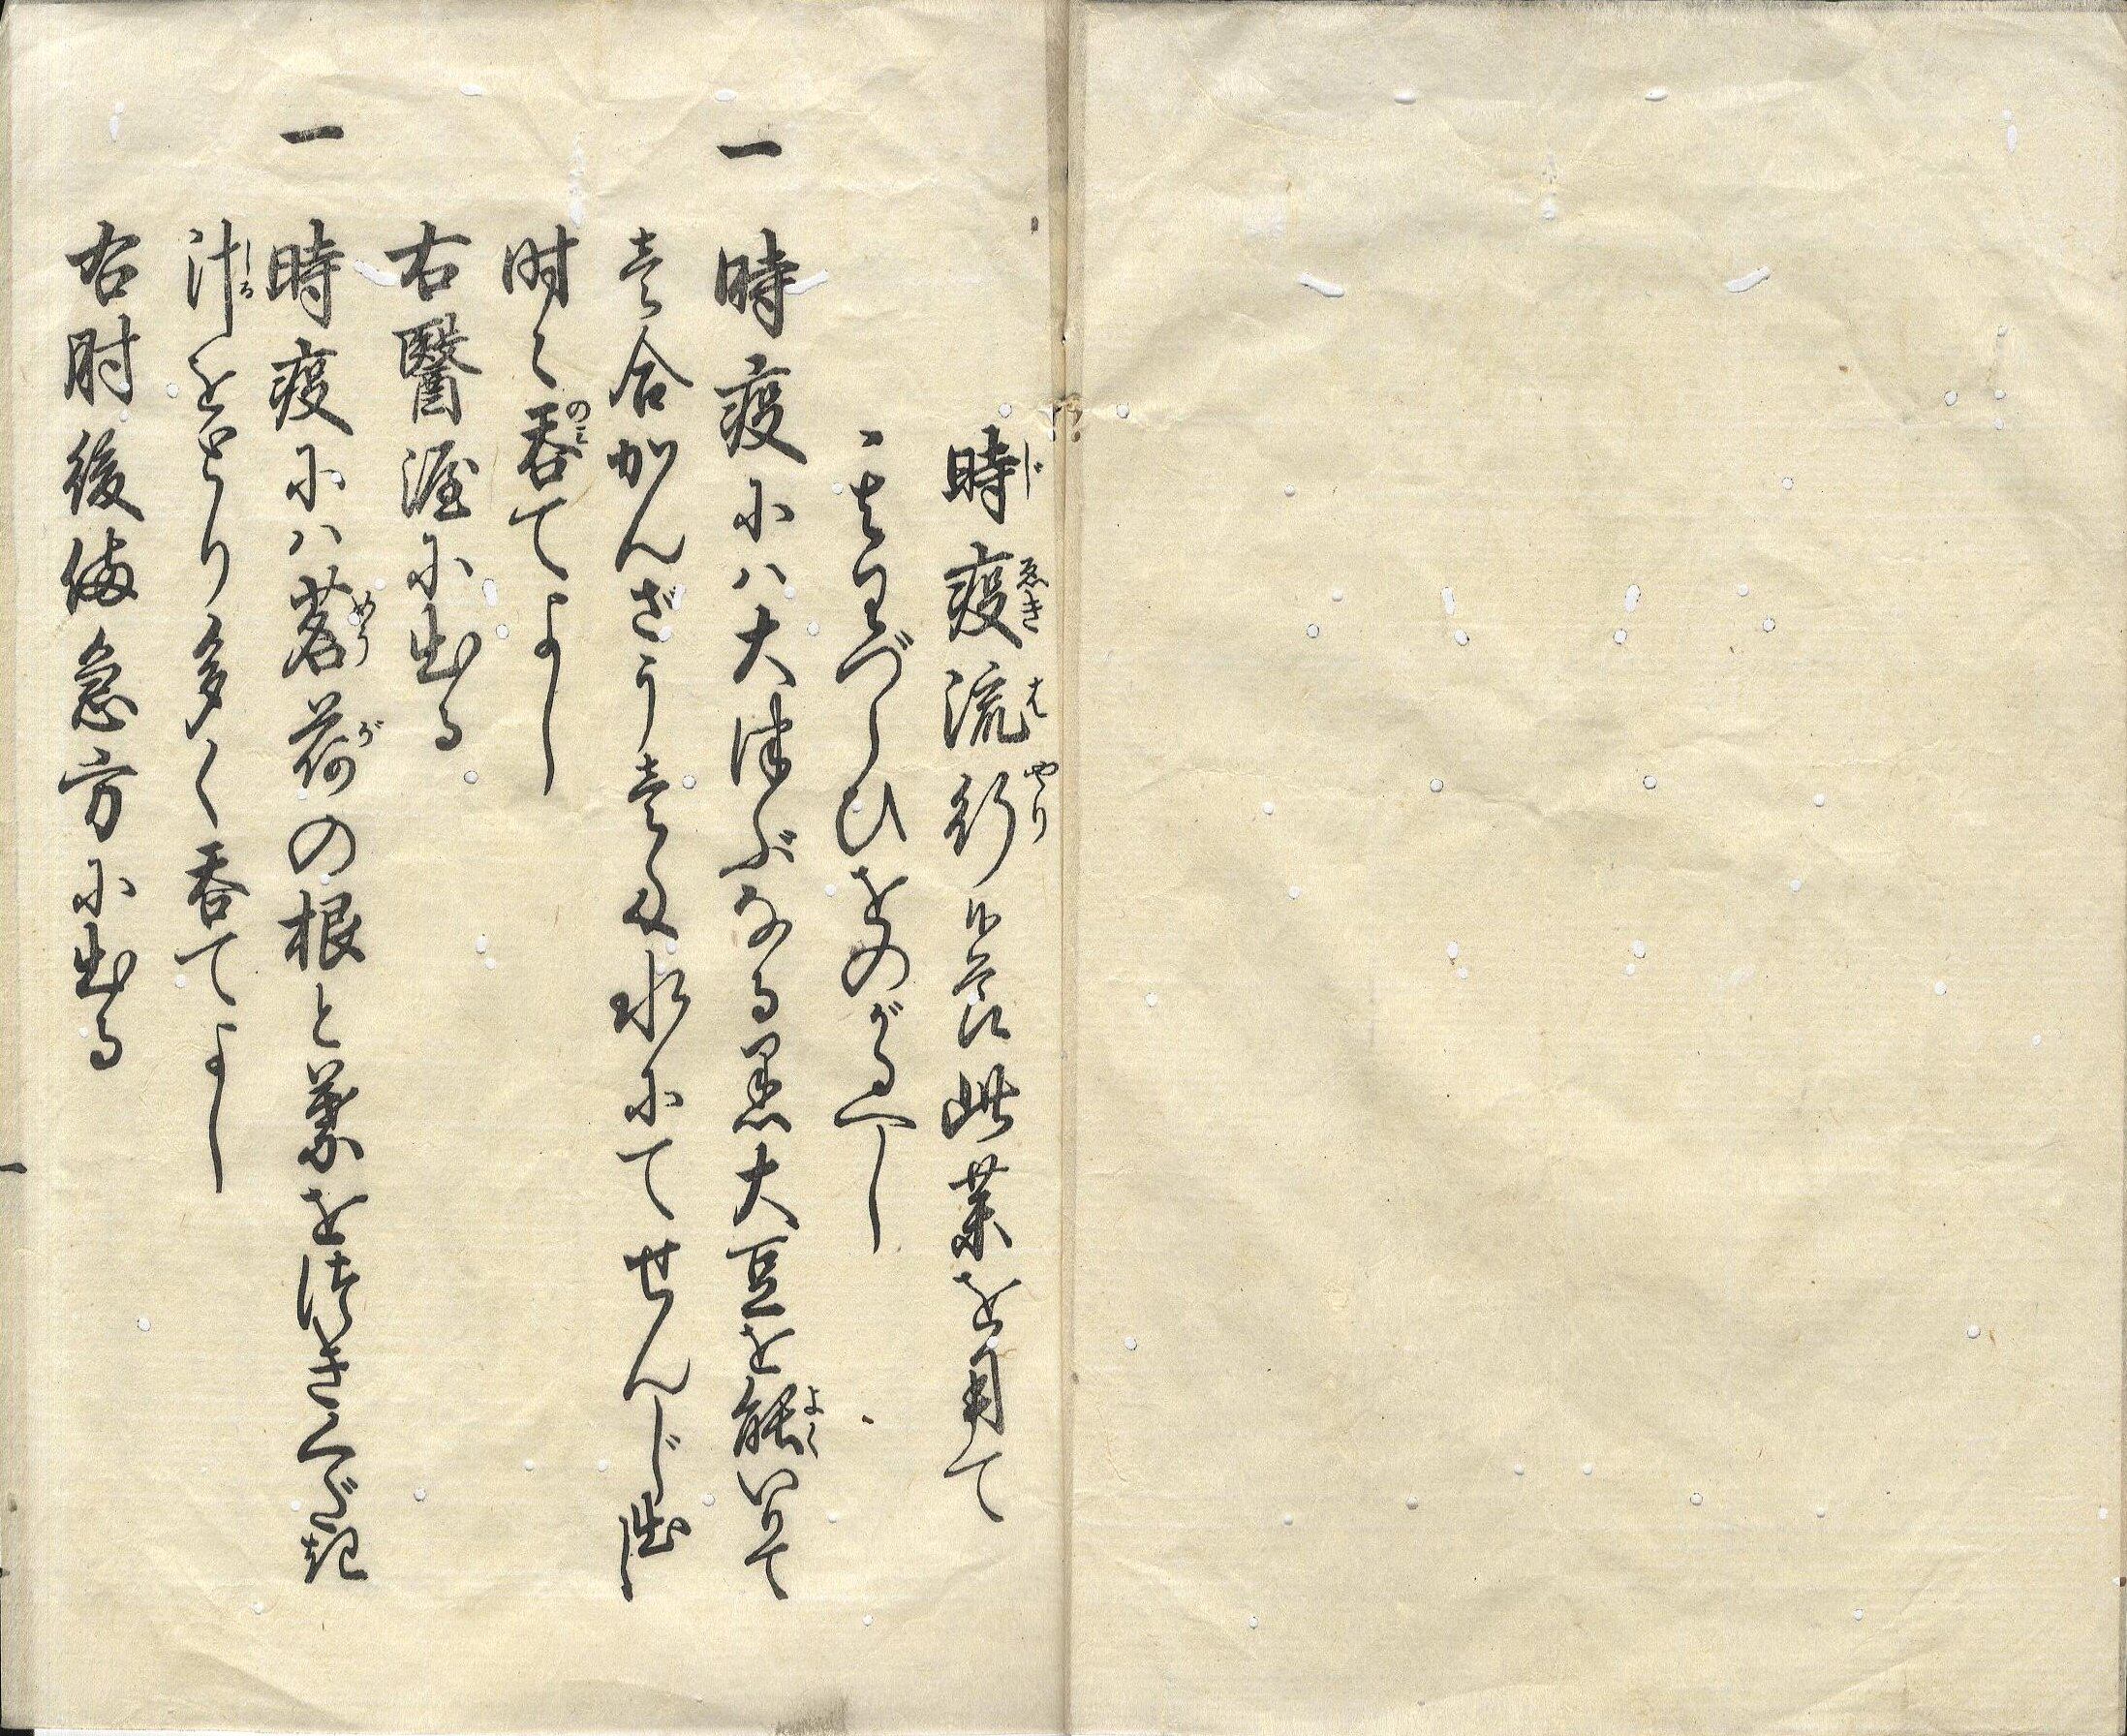 時疫流行候節此薬を用て
其わづらひをのがるべし
一 時疫にハ大つぶなる黒大豆を能いりて
壱合かんざう壱匁水にてせんじ出し
時々呑てよし
右醫渥に出る
一 時疫にハ茗荷の根と葉をつきくだき
汁をとり多く呑てよし
右肘後備急方に出る